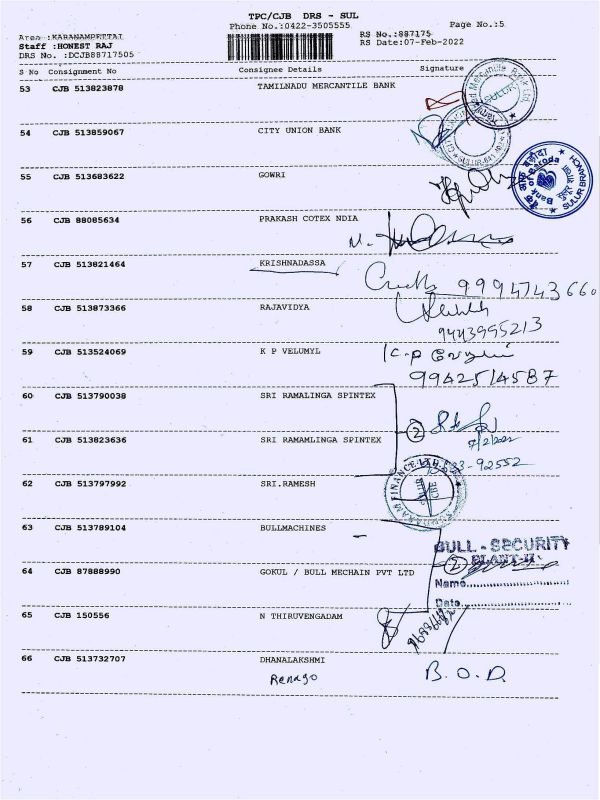 TPC/CJB DRS - SUL
Phone No.:0422-3505555
Page No.:5
Area :KARANAMPETTAI
Staff :HONEST RAJ
DRS No. :DCJB88717505
RS No.:887175
RS Date:07-Feb-2022
S No Consignment No Consignee Details Signature
53 CJB 513823878 TAMILNADU MERCANTILE BANK
54 CJB 513859067 CITY UNION BANK
55 CJB 513683622 GOWRI
56 CJB 88085634 PRAKASH COTEX NDIA
57 CJB 513821464 KRISHNADASSA
9994743660
58 CJB 513873366 RAJAVIDYA
9443995213
59 CJB 513524069 K P VELUMYL
9942514587
60 CJB 513790038 SRI RAMALINGA SPINTEX
2
61 CJB 513823636 SRI RAMAMLINGA SPINTEX
7/2/2022
62 CJB 513797992 SRI.RAMESH
63 CJB 513789104 BULLMACHINES
BULL - SECURITY
PLANT-II
64 CJB 87888990 GOKUL / BULL MECHAIN PVT LTD
2
Name
Date
65 CJB 150556 N THIRUVENGADAM
66 CJB 513732707 DHANALAKSHMI
B.O.D
Bank of Baroda
SULUR BRANCH